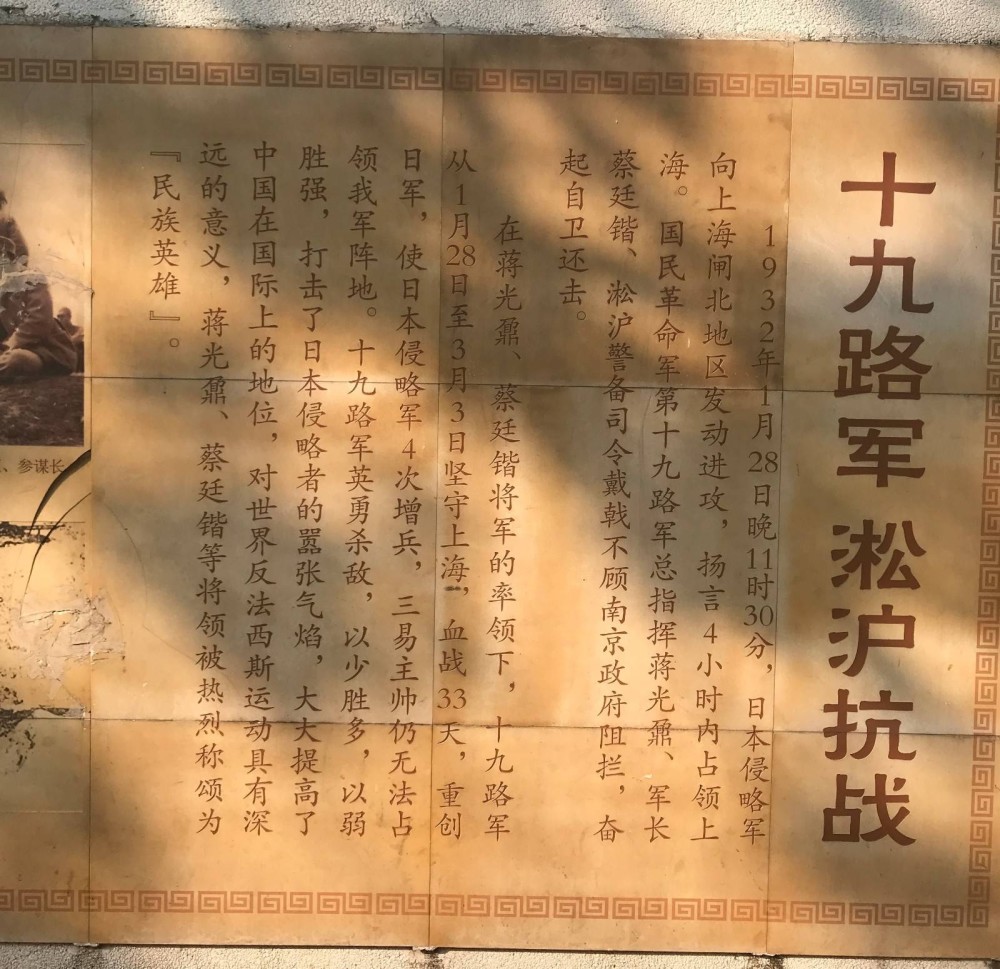 十九路军 淞沪抗战
1932年1月28日晚11时30分，日本侵略军
向上海闸北地区发动进攻，扬言4小时内占领上
海。国民革命军第十九路军总指挥蒋光鼐、军长
蔡廷锴、淞沪警备司令戴戟不顾南京政府阻拦，奋
起自卫还击。
在蒋光鼐、蔡廷锴将军的率领下，十九路军
从1月28日至3月3日坚守上海，血战33天，重创
日军，使日本侵略军4次增兵，三易主帅仍无法占
领我军阵地。十九路军英勇杀敌，以少胜多，以弱
胜强，打击了日本侵略者的嚣张气焰，大大提高了
中国在国际上的地位，对世界反法西斯运动具有深
远的意义，蒋光鼐、蔡廷锴等将领被热烈称颂为
『民族英雄』。
、参谋长